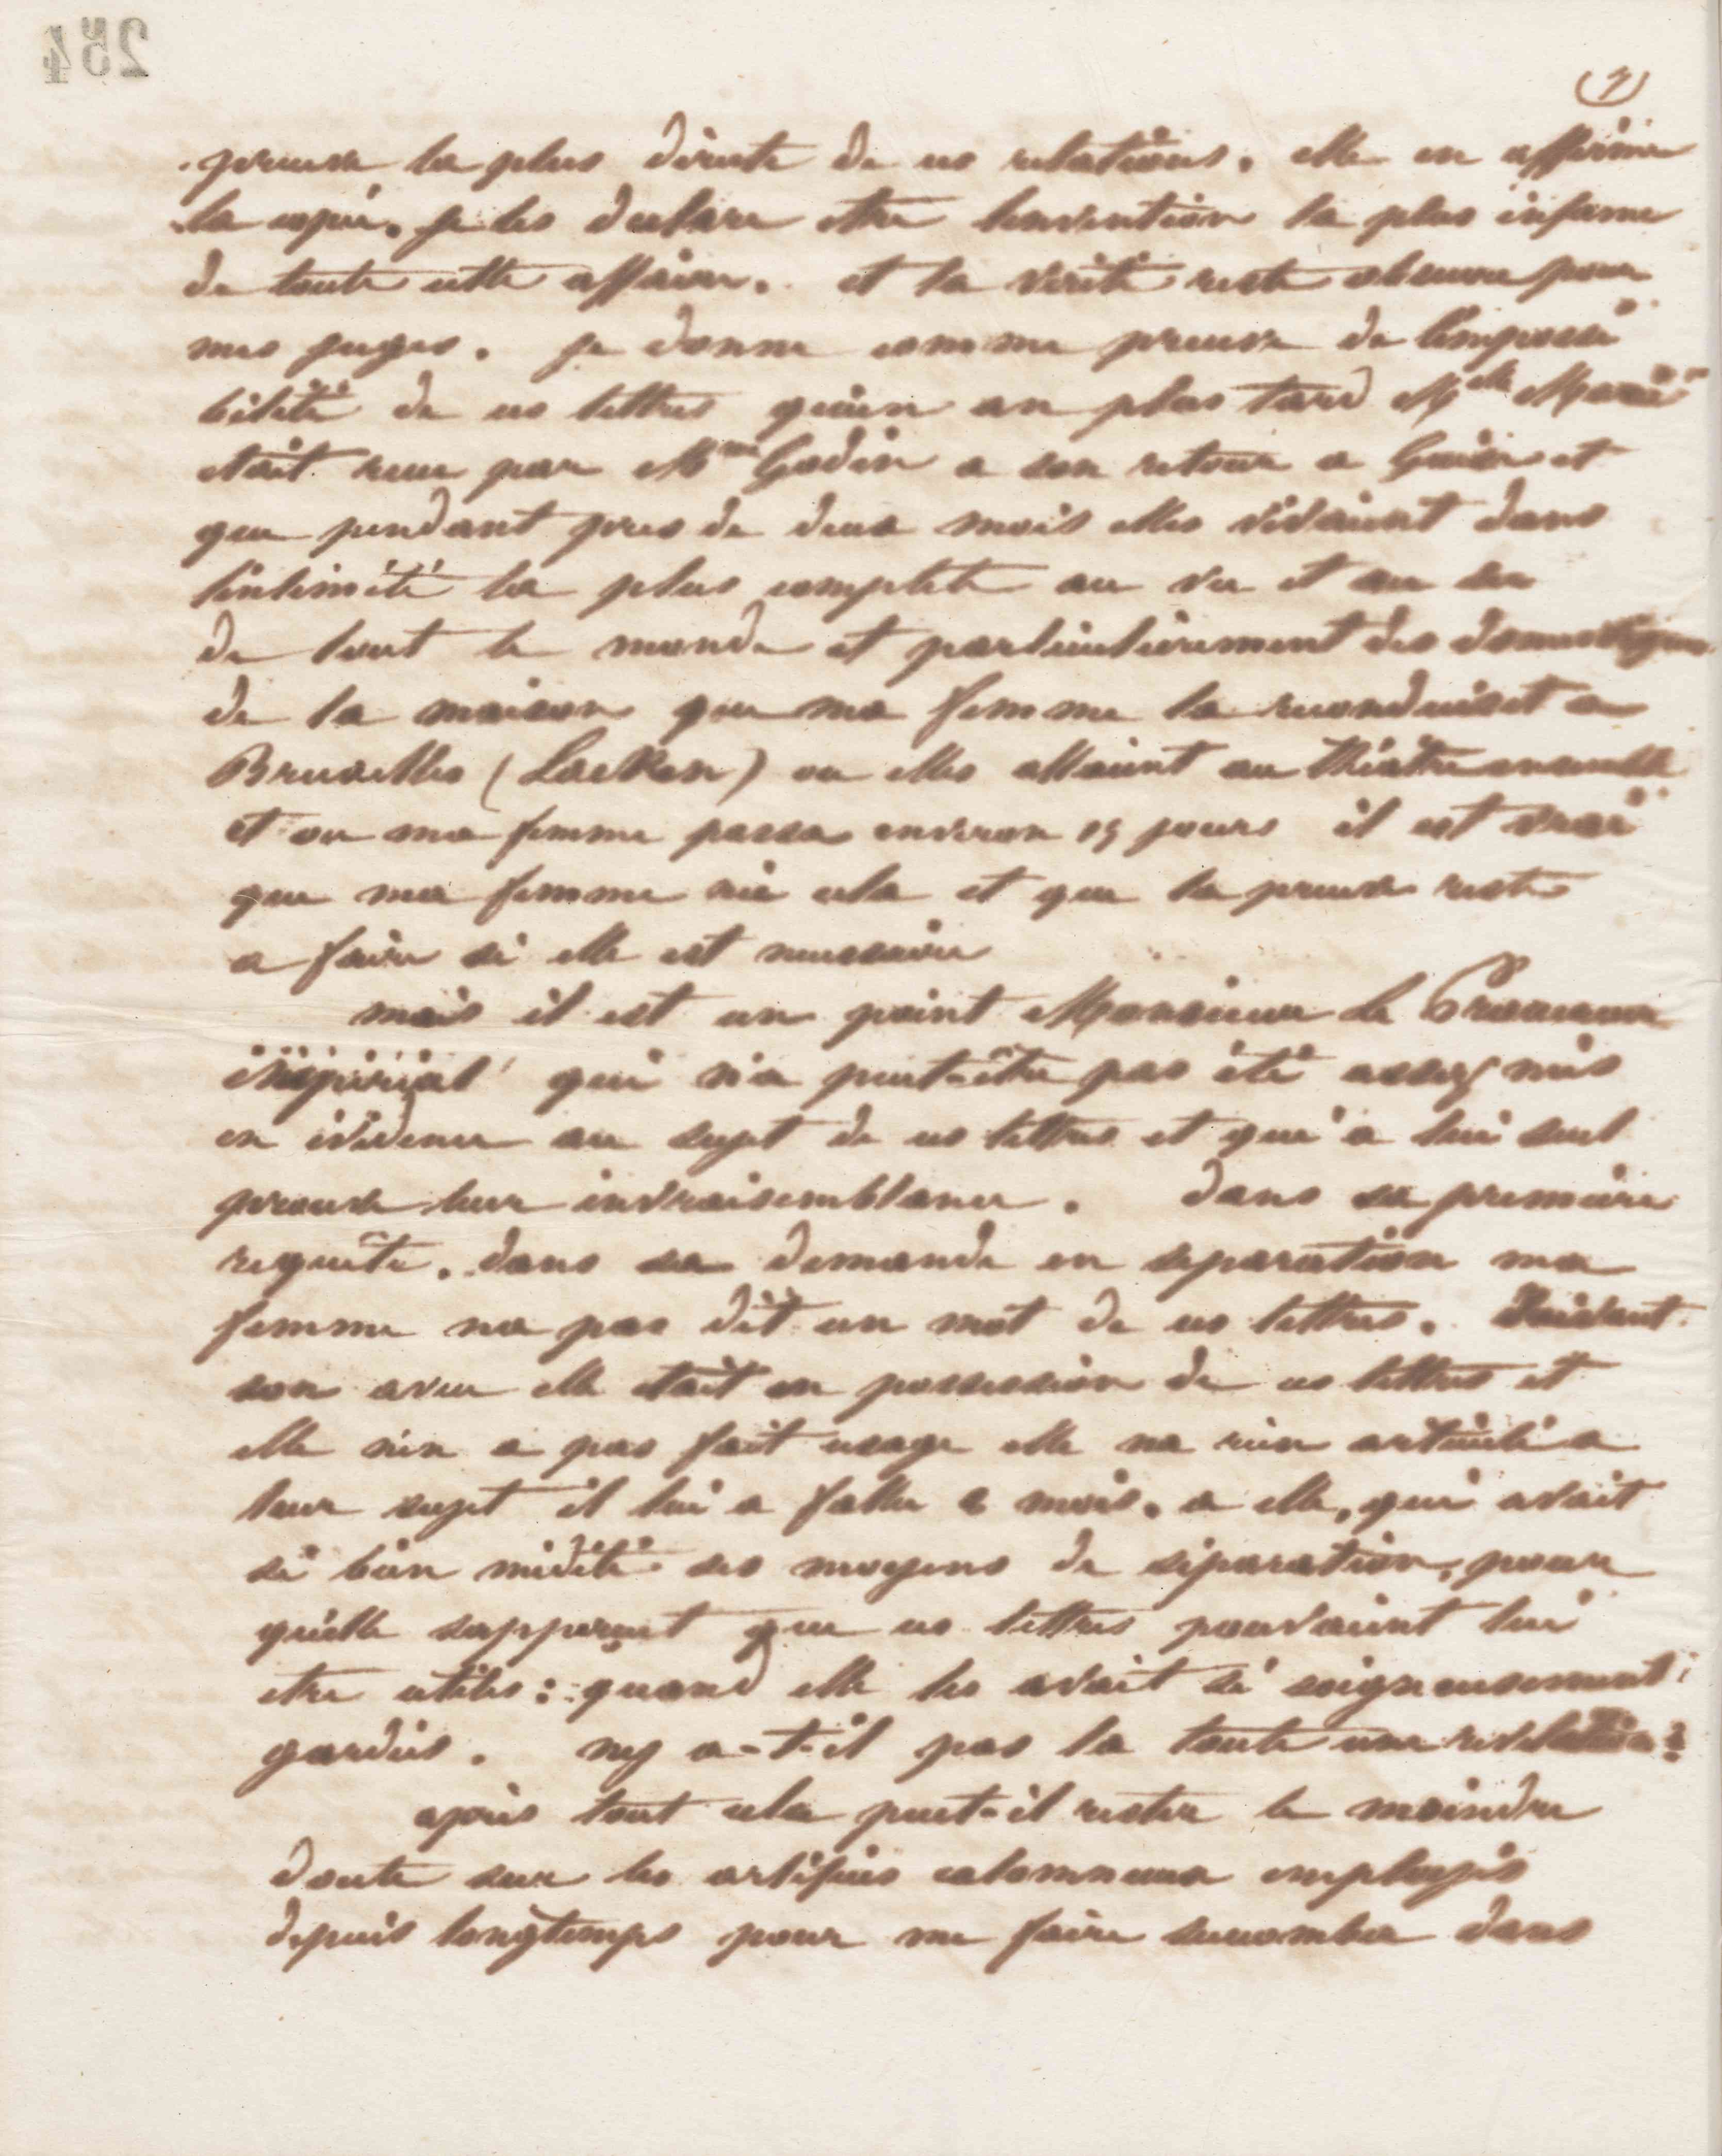 254
(7)
preuve la plus directe de ces relations. elle en affirme
la copie. je les declare etre linvention la plus infame
de toute cette affaire. et la vérité reste obscure pour
mes juges. je donne comme preuve de limpossi
bilité de ces lettres qu'un an plus tard Melle Marie
etait recue par Mme Godin a son retour a Guise et
que pendant pres de deux mois elles vivaient dans
lintimité la plus complete au vu et au su
de tout le monde et particulièrement des domestiques
de la maison que ma femme la reconduisit a
Bruxelles (Laeken) ou elles allaient au théâtre ensemble
et ou ma femme passa environ 15 jours il est vrai
que ma femme nie cela et que la preuve reste
a faire si elle est necessaire
mais il est un point Monsieur Le Procureur
impérial qui n'a peut-être pas été assez mis
en évidence au sujet de ces lettres et qui a lui seul
prouve leur invraisemblance. Dans sa première
requête. dans sa demande en separation ma
femme na pas dit un mot de ces lettres. Suivant
son aveu elle etait en possession de ces lettres et
elle n'en a pas fait usage elle na rien articulé a
leur sujet il lui a fallu mois. a elle, qui avait
si bien médité ses moyens de séparation, pour
qu'elle sapperçut que ces lettres pouvaient lui
etre utiles: quand elle les avait si soigneusement
gardées. ny a-t-il pas la toute une révélation?
après tout cela peut-il rester le moindre
doute sur les artifices calomnieux employés
depuis longtemps pour me faire succomber dans